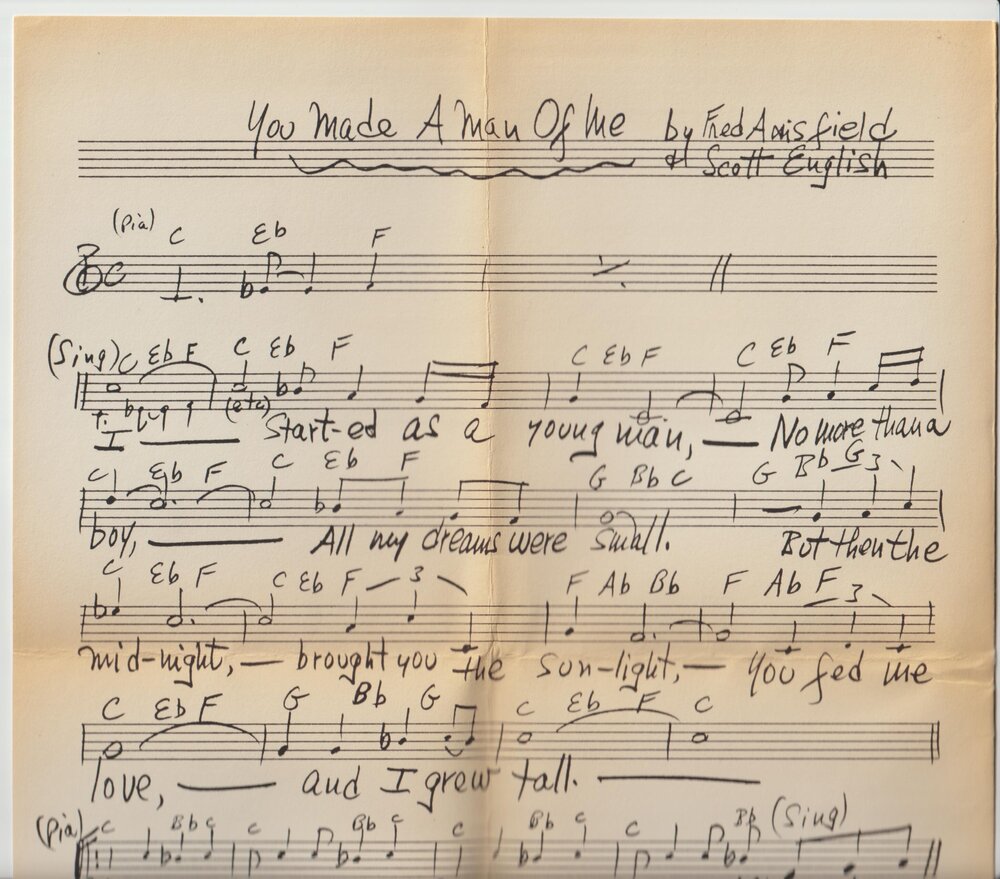 You Made A Man Of Me by Fred Anisfield
& Scott English
(Pia) C Eb F
(Sing) C Eb F C Eb F C Eb F C Eb F
(etc)
I — Start-ed as a young man, — No more than a
C Eb F C Eb F G Bb C G Bb G 3
boy, — All my dreams were Small. But then the
C Eb F C Eb F 3 F Ab Bb F Ab F 3
mid-night, — brought you the sun-light, — You fed me
C Eb F G Bb G C Eb F C
love, — and I grew tall. —
(Pia) C Bb C C Bb C C Bb C C Bb (Sing)